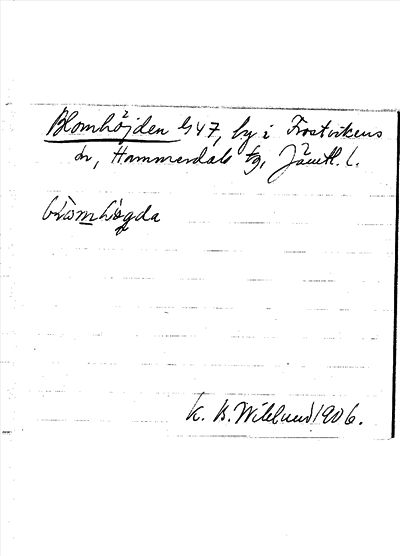 Blomhöjden 447, by i Frostvikens
sn, Hammerdals tg, Jämtl. l.
blomhögda
K. B. Wiklund 1906.